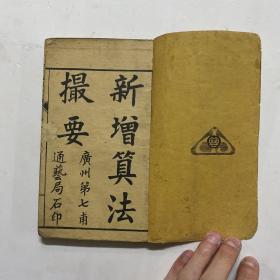 新增算法
撮要
廣州第七甫
通藝局石印